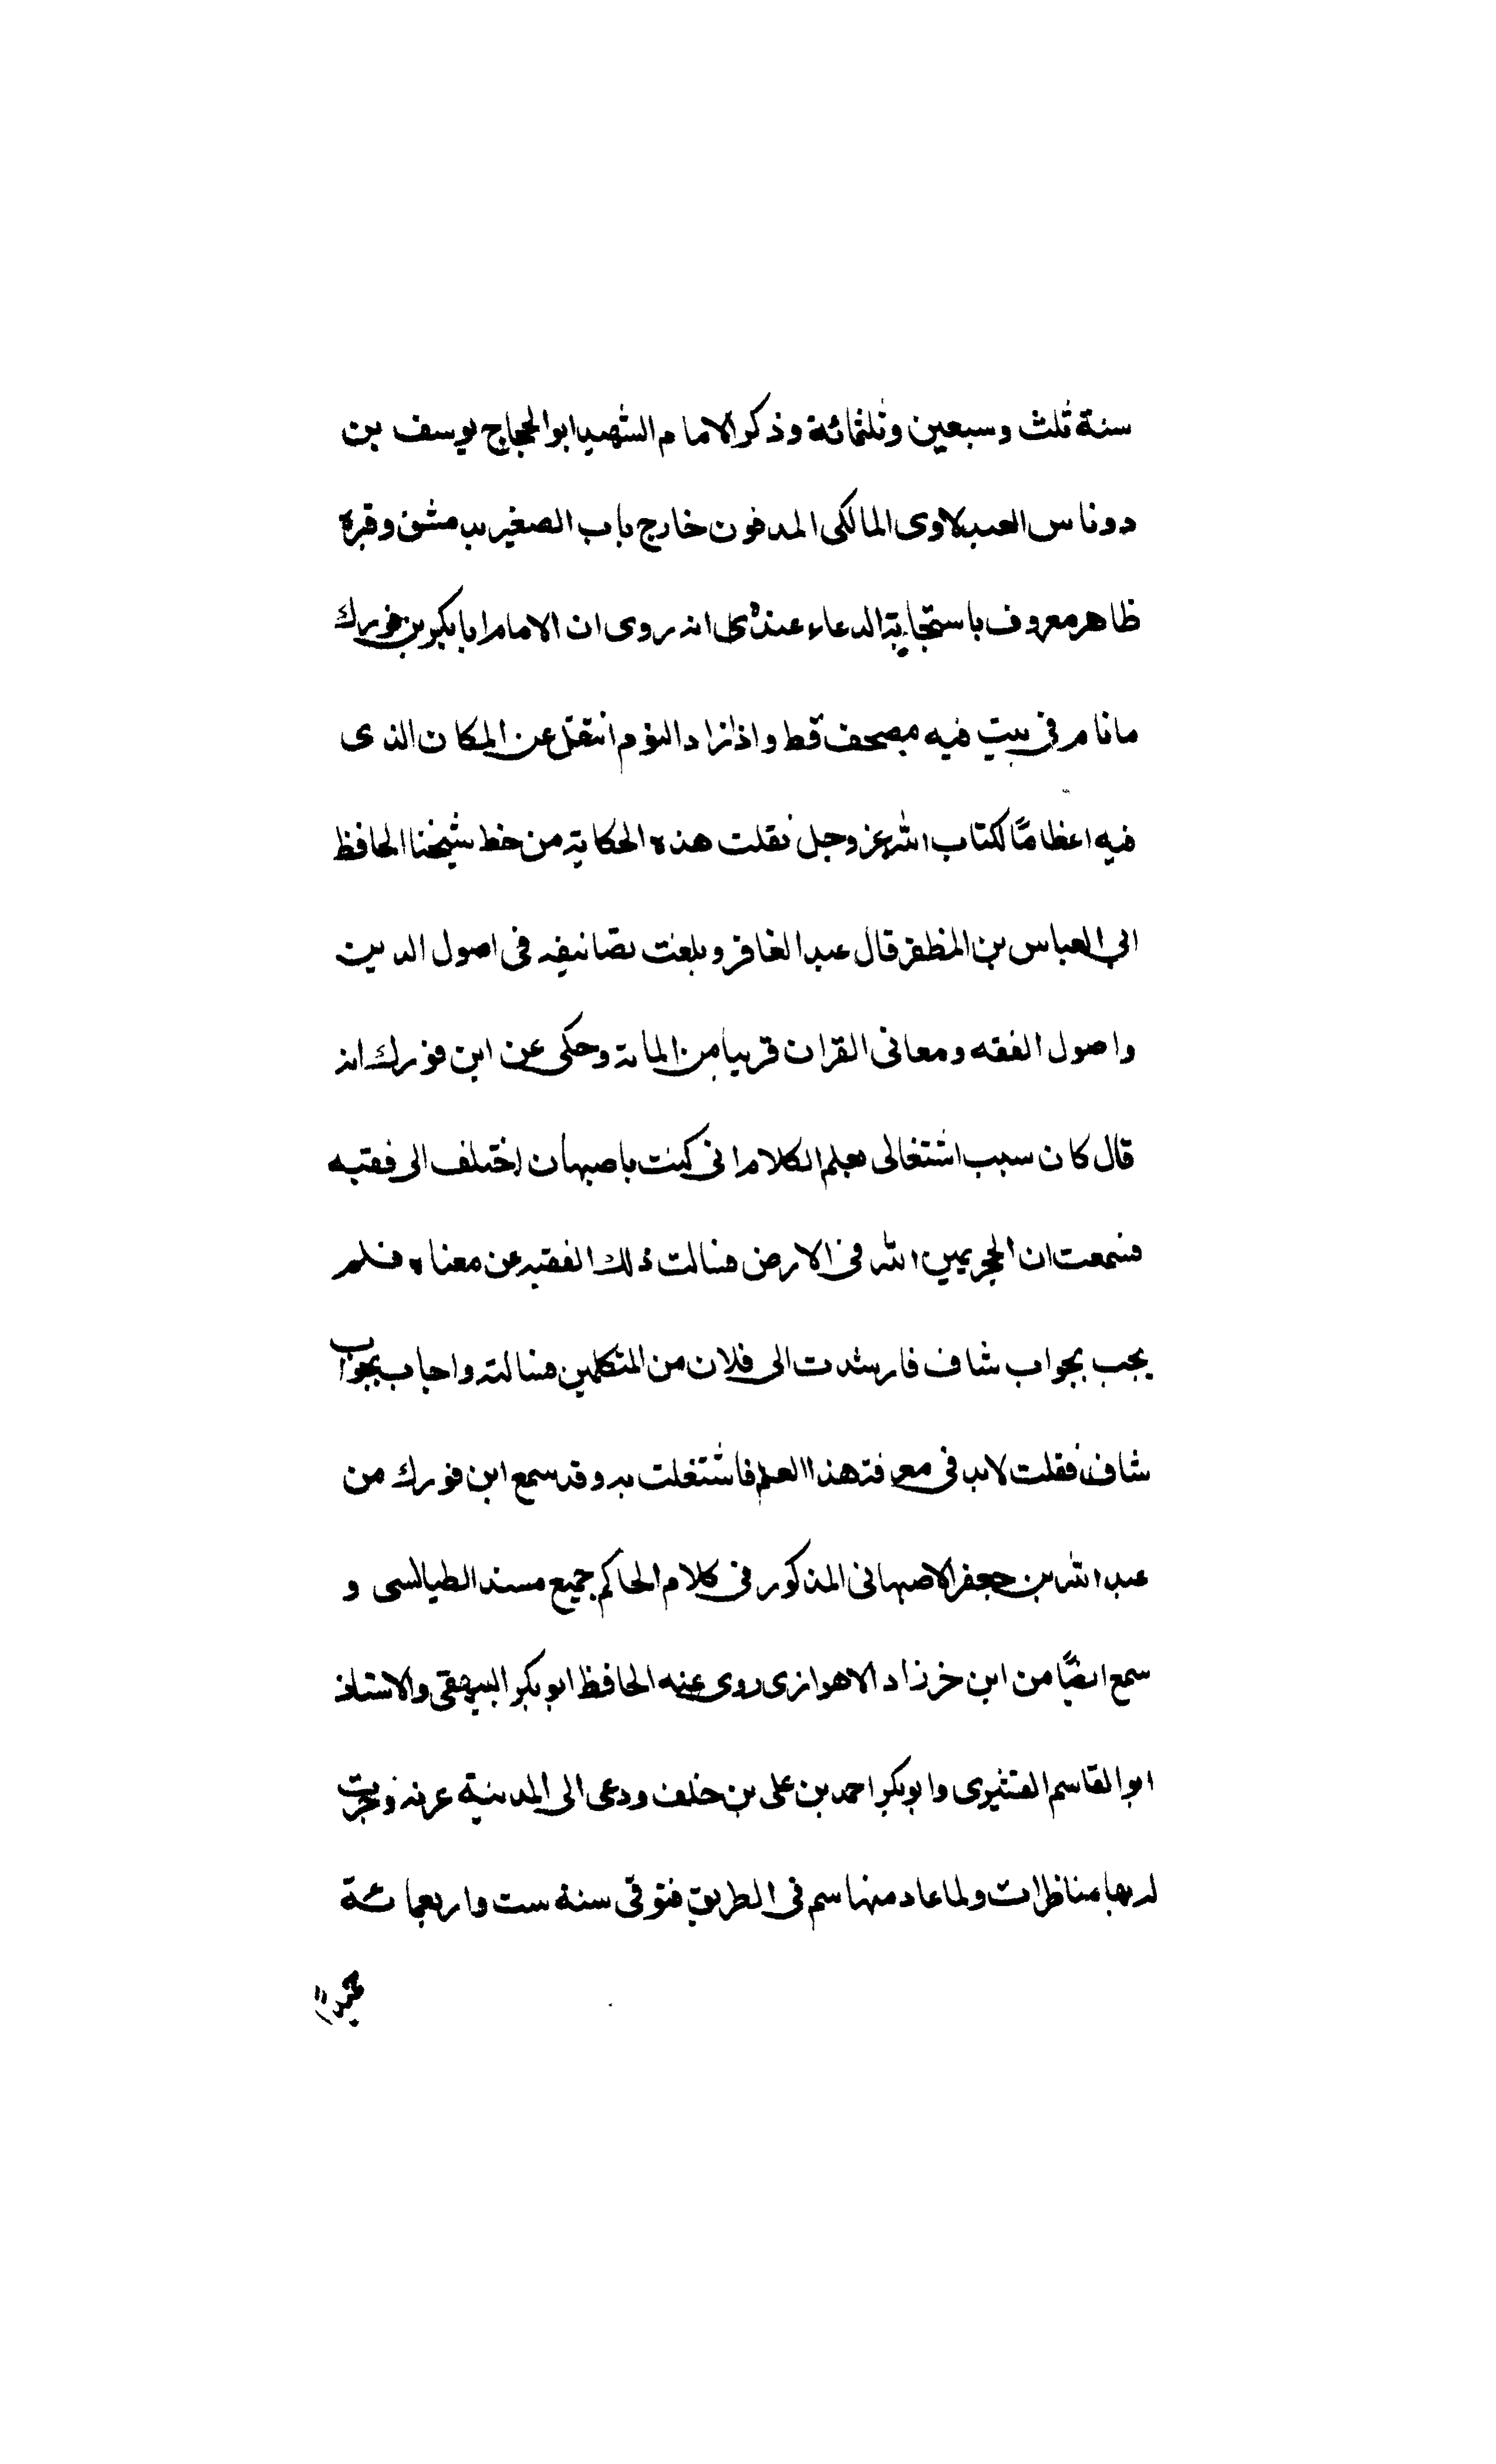 سنة ثلث وسبعين وثلثمائة وذكر الامام الشهيد ابو الحجاج يوسف بن
دوناس العبدلاوى المالكى المدفون خارج باب الصغير بدمشق وقبره
ظاهر معروف باستجابة الدعاء عنده انه روى ان الامام ابا بكر بن فورك
ما نام فى بيت فيه مصحف قط واذا اراد النوم انتقل عن المكان الذى
فيه اعظامًا لكتاب الله عز وجل نقلت هذه الحكاية من خط شيخنا الحافظ
ابى العباس بن المظفر قال عبد الغافر وبلغت تصانيفه فى اصول الدين
واصول الفقه ومعانى القران قريبا من الماية وحكى عن ابن فورك انه
قال كان سبب اشتغالى بعلم الكلام انى كنت باصبهان اختلف الى فقيه
فسمعت ان الحجر يمين الله فى الارض فسالت ذلك الفقيه عن معناه فلم
يجب بجواب شاف فارشدت الى فلان من المتكلمين فسالته واجاب بجواب
شاف فقلت لابد فى معرفة هذا العلم فاشتغلت به وقد سمع ابن فورك من
عبد الله بن جعفر الاصبهانى المذكور فى كلام الحاكم جميع مسند الطيالسى و
سمع ايضًا من ابن خرزاد الاهوازى روى عنه الحافظ ابو بكر البيهقى والاستاذ
ابو القاسم القشيرى وابو بكر احمد بن على بن خلف ودعى الى المدينة غزنة وجرت
له بها مناظرات ولما عاد منها سم فى الطريق فتوفى سنة ست واربعمائة